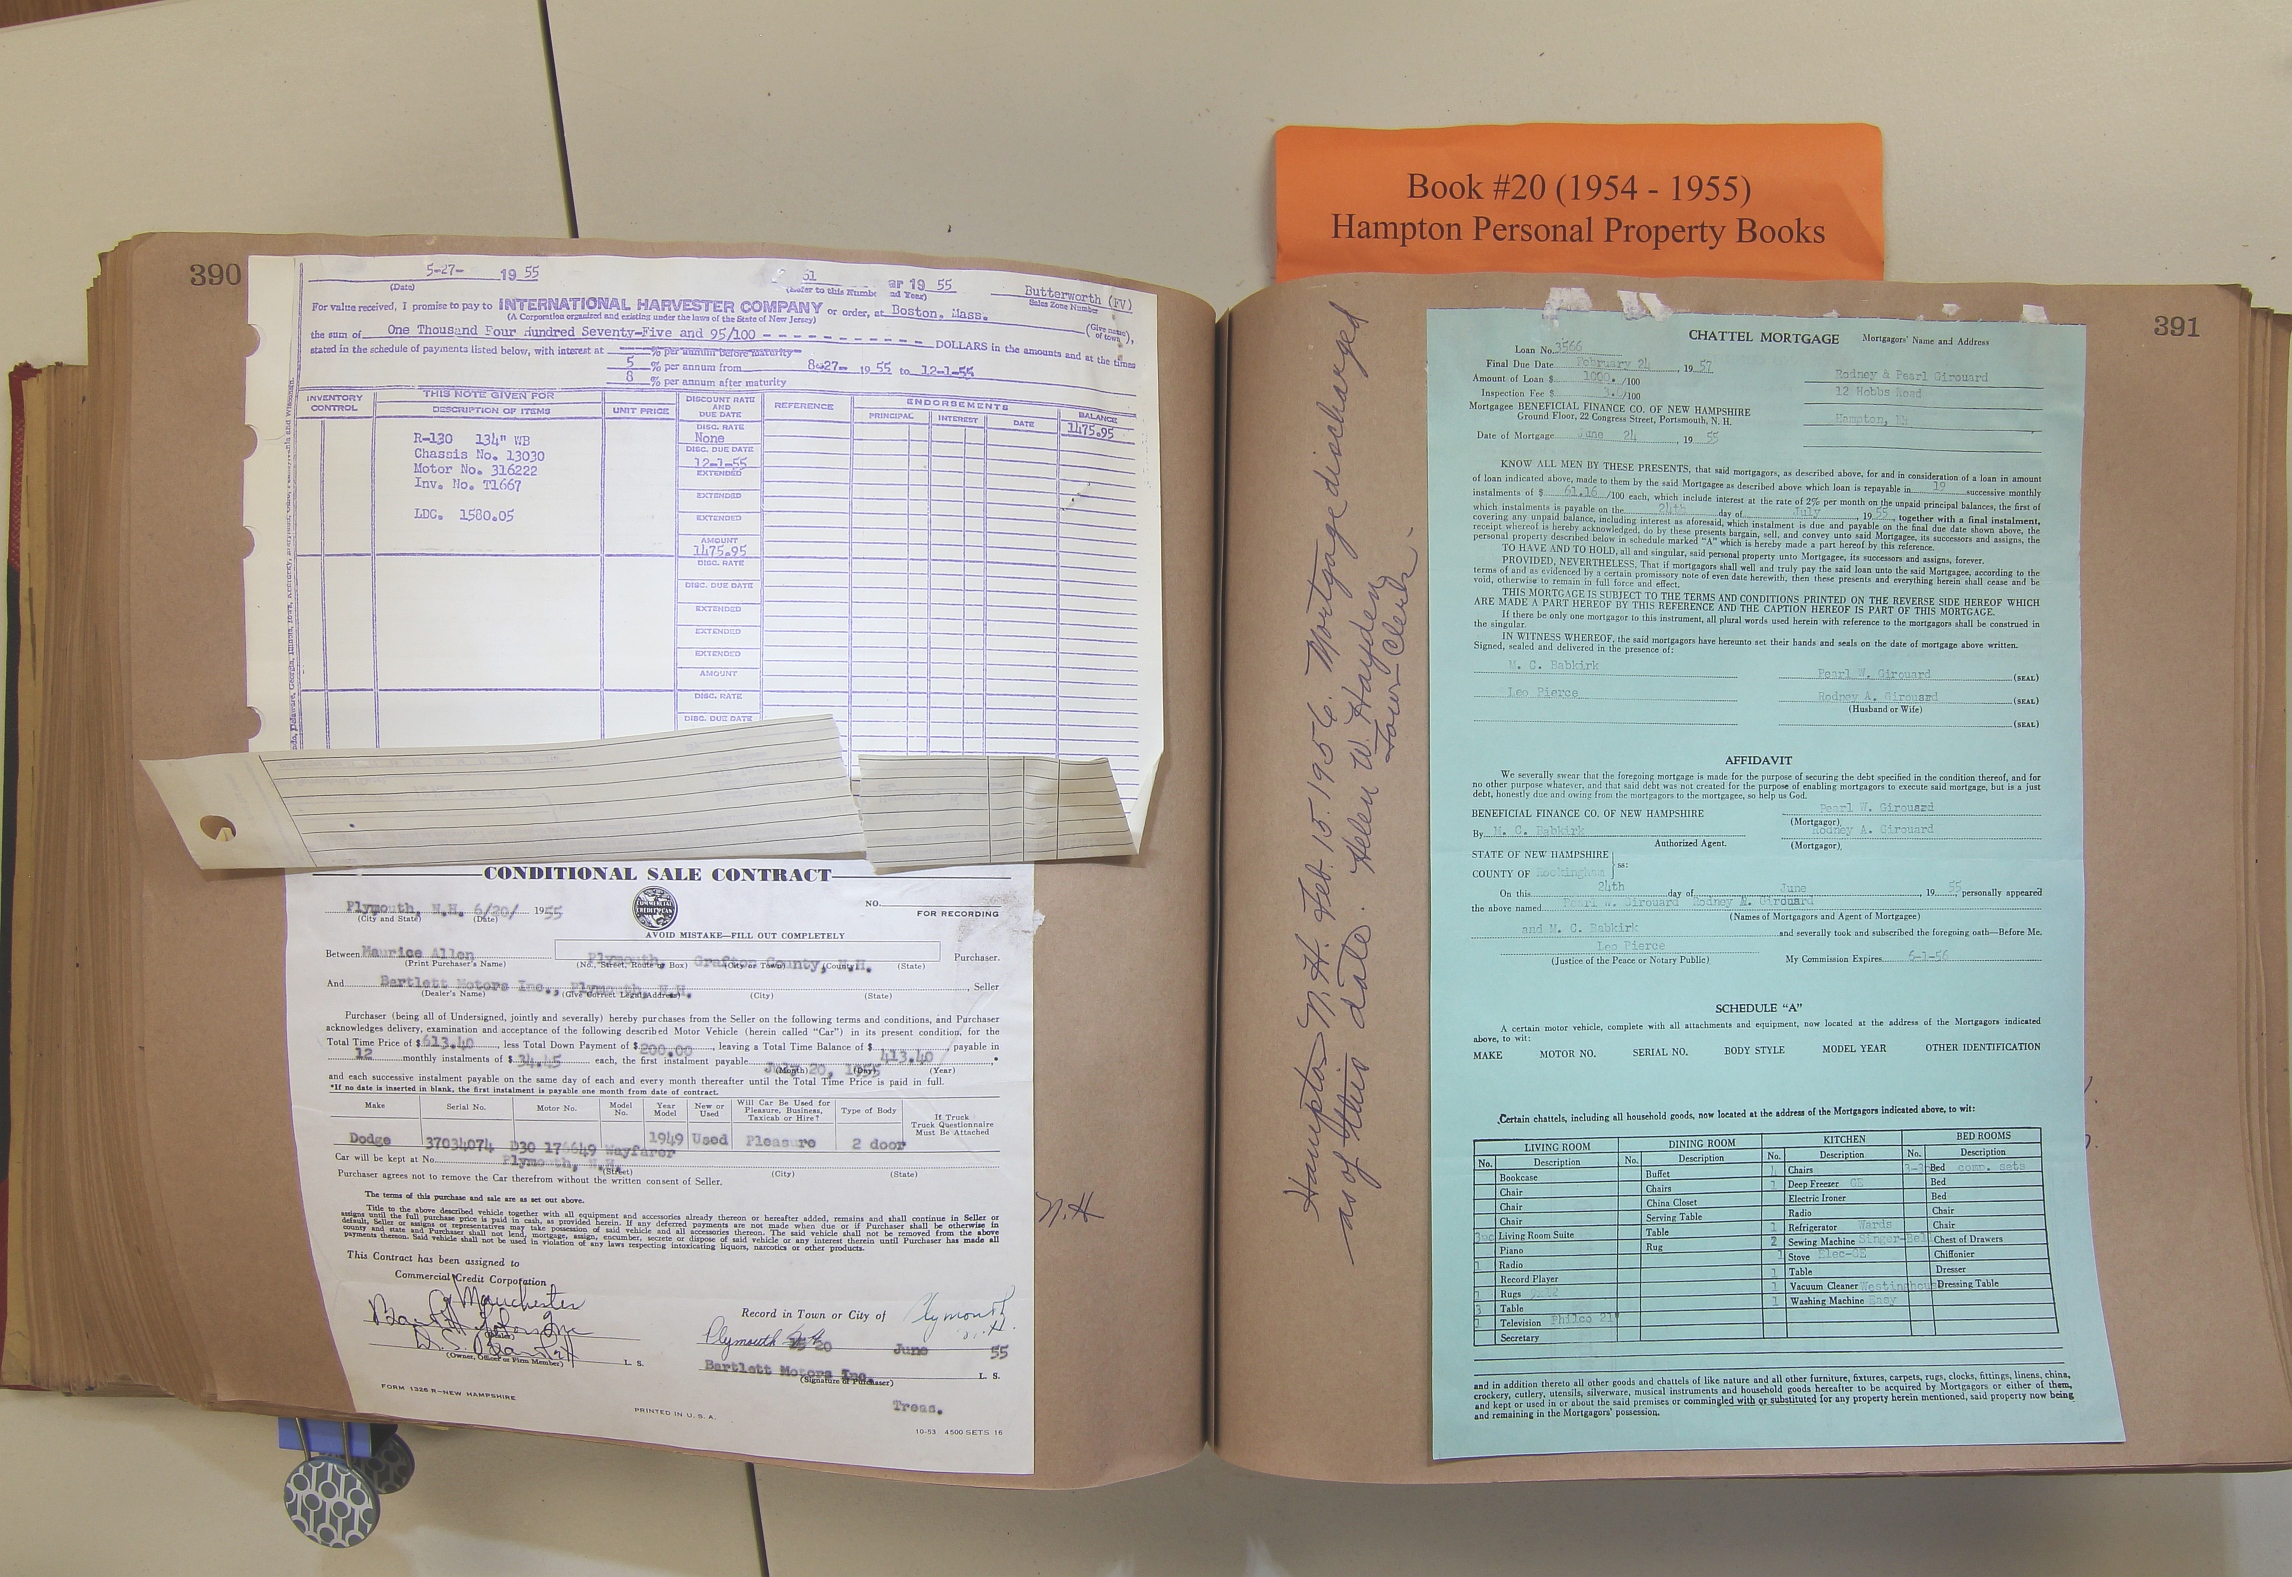 Book #20 (1954 - 1955)
Hampton Personal Property Books
390
5-27- 19 55
(Date)
51
ar 19 55
Butterworth (FV)
Sales Zone Number
For value received, I promise to pay to INTERNATIONAL HARVESTER COMPANY or order, at Boston, Mass.
(A Corporation organized and existing under the laws of the State of New Jersey)
(Give name of town),
the sum of One Thousand Four Hundred Seventy-Five and 95/100 - - - - - - - - - - - DOLLARS in the amounts and at the times
stated in the schedule of payments listed below, with interest at % per annum before maturity
5 % per annum from 8-27- 19 55 to 12-1-55
8 % per annum after maturity
INVENTORY CONTROL
THIS NOTE GIVEN FOR
DESCRIPTION OF ITEMS
UNIT PRICE
DISCOUNT RATE AND DUE DATE
REFERENCE
ENDORSEMENTS
PRINCIPAL INTEREST DATE
BALANCE
1475.95
R-130 134" WB
Chassis No. 13030
Motor No. 316222
Inv. No. T1667
LDC. 1580.05
DISC. RATE
None
DISC. DUE DATE
12-1-55
EXTENDED
EXTENDED
EXTENDED
AMOUNT
1475.95
DISC. RATE
DISC. DUE DATE
EXTENDED
EXTENDED
EXTENDED
AMOUNT
DISC. RATE
DISC. DUE DATE
CONDITIONAL SALE CONTRACT
Plymouth, N.H. 6/20/ 1955
(City and State) (Date)
COMMERCIAL CREDIT PLAN
NO.
FOR RECORDING
AVOID MISTAKE—FILL OUT COMPLETELY
Between Maurice Allen Plymouth, Grafton County, N.H. Purchaser.
(Print Purchaser's Name) (No., Street, Route or Box) (City or Town) (County) (State)
And Bartlett Motors Inc., Plymouth, N.H. , Seller
(Dealer's Name) (Give Correct Legal Address) (City) (State)
Purchaser (being all of Undersigned, jointly and severally) hereby purchases from the Seller on the following terms and conditions, and Purchaser
acknowledges delivery, examination and acceptance of the following described Motor Vehicle (herein called "Car") in its present condition, for the
Total Time Price of $613.40, less Total Down Payment of $200.00, leaving a Total Time Balance of $413.40 payable in
12 monthly instalments of $34.45 each, the first instalment payable July 20, 1955 *
(Month) (Day) (Year)
and each successive instalment payable on the same day of each and every month thereafter until the Total Time Price is paid in full.
*If no date is inserted in blank, the first instalment is payable one month from date of contract.
Make Serial No. Motor No. Model No. Year Model New or Used Will Car Be Used for Pleasure, Business, Taxicab or Hire? Type of Body If Truck Truck Questionnaire Must Be Attached
Dodge 37034074 D30 176649 Wayfarer 1949 Used Pleasure 2 door
Car will be kept at No. Plymouth, N.H.
(Street) (City) (State)
Purchaser agrees not to remove the Car therefrom without the written consent of Seller.
The terms of this purchase and sale are as set out above.
Title to the above described vehicle together with all equipment and accessories already thereon or hereafter added, remains and shall continue in Seller or
assigns until the full purchase price is paid in cash, as provided herein. If any deferred payments are not made when due or if Purchaser shall be otherwise in
default, Seller or assigns or representatives may take possession of said vehicle and all accessories thereon. The said vehicle shall not be removed from the above
county and state and Purchaser shall not lend, mortgage, assign, encumber, secrete or dispose of said vehicle or any interest therein until Purchaser has made all
payments thereon. Said vehicle shall not be used in violation of any laws respecting intoxicating liquors, narcotics or other products.
This Contract has been assigned to
Commercial Credit Corporation
Manchester
(Owner, Officer or Firm Member) L. S.
Record in Town or City of Plymouth
N.H.
Plymouth 20 June 55
Bartlett Motors Inc. L. S.
(Signature of Purchaser)
Treas.
FORM 1326 R—NEW HAMPSHIRE
PRINTED IN U. S. A.
10-53 4500 SETS 16
N.H
Hampton N.H. Feb. 15, 1956. Mortgage discharged
as of this date. Helen W. Hayden
Town Clerk.
391
CHATTEL MORTGAGE
Mortgagors' Name and Address
Loan No. 3566
Final Due Date February 24, 1957
Amount of Loan $ 1000. /100
Inspection Fee $ /100
Rodney & Pearl Girouard
12 Hobbs Road
Hampton, NH
Mortgagee BENEFICIAL FINANCE CO. OF NEW HAMPSHIRE
Ground Floor, 22 Congress Street, Portsmouth, N. H.
Date of Mortgage June 24, 1955
KNOW ALL MEN BY THESE PRESENTS, that said mortgagors, as described above, for and in consideration of a loan in amount
of loan indicated above, made to them by the said Mortgagee as described above which loan is repayable in 19 successive monthly
instalments of $ 61.16 /100 each, which include interest at the rate of 2% per month on the unpaid principal balances, the first of
which instalments is payable on the 24th day of July, 1955, together with a final instalment,
covering any unpaid balance, including interest as aforesaid, which instalment is due and payable on the final due date shown above, the
receipt whereof is hereby acknowledged, do by these presents bargain, sell, and convey unto said Mortgagee, its successors and assigns, the
personal property described below in schedule marked "A" which is hereby made a part hereof by this reference.
TO HAVE AND TO HOLD, all and singular, said personal property unto Mortgagee, its successors and assigns, forever.
PROVIDED, NEVERTHELESS, That if mortgagors shall well and truly pay the said loan unto the said Mortgagee, according to the
terms of and as evidenced by a certain promissory note of even date herewith, then these presents and everything herein shall cease and be
void, otherwise to remain in full force and effect.
THIS MORTGAGE IS SUBJECT TO THE TERMS AND CONDITIONS PRINTED ON THE REVERSE SIDE HEREOF WHICH
ARE MADE A PART HEREOF BY THIS REFERENCE AND THE CAPTION HEREOF IS PART OF THIS MORTGAGE.
If there be only one mortgagor to this instrument, all plural words used herein with reference to the mortgagors shall be construed in
the singular.
IN WITNESS WHEREOF, the said mortgagors have hereunto set their hands and seals on the date of mortgage above written.
Signed, sealed and delivered in the presence of:
M. C. Babkirk Pearl W. Girouard (SEAL)
Leo Pierce Rodney A. Girouard (SEAL)
(Husband or Wife)
(SEAL)
AFFIDAVIT
We severally swear that the foregoing mortgage is made for the purpose of securing the debt specified in the condition thereof, and for
no other purpose whatever, and that said debt was not created for the purpose of enabling mortgagors to execute said mortgage, but is a just
debt, honestly due and owing from the mortgagors to the mortgagee, so help us God.
BENEFICIAL FINANCE CO. OF NEW HAMPSHIRE
Pearl W. Girouard
(Mortgagor)
By M. C. Babkirk
Authorized Agent.
Rodney A. Girouard
(Mortgagor)
STATE OF NEW HAMPSHIRE
ss:
COUNTY OF Rockingham
On this 24th day of June, 1955 personally appeared
the above named Pearl W. Girouard Rodney M. Girouard
(Names of Mortgagors and Agent of Mortgagee)
and M. C. Babkirk and severally took and subscribed the foregoing oath—Before Me.
Leo Pierce
(Justice of the Peace or Notary Public)
My Commission Expires 6-1-56
SCHEDULE "A"
A certain motor vehicle, complete with all attachments and equipment, now located at the address of the Mortgagors indicated
above, to wit:
MAKE MOTOR NO. SERIAL NO. BODY STYLE MODEL YEAR OTHER IDENTIFICATION
Certain chattels, including all household goods, now located at the address of the Mortgagors indicated above, to wit:
LIVING ROOM DINING ROOM KITCHEN BED ROOMS
No. Description No. Description No. Description No. Description
Bookcase Buffet Chairs 3-3 Bed comp. sets
Chair Chairs 1 Deep Freezer GE Bed
Chair China Closet Electric Ironer Bed
Chair Serving Table Radio Chair
3pc Living Room Suite Table 1 Refrigerator Wards Chair
Piano Rug 2 Sewing Machine Singer-Bel Chest of Drawers
1 Radio 1 Stove Elec-GE Chiffonier
Record Player 1 Table Dresser
1 Rugs 9x12 1 Vacuum Cleaner Westinghouse Dressing Table
3 Table 1 Washing Machine Easy
1 Television Philco 21"
Secretary
and in addition thereto all other goods and chattels of like nature and all other furniture, fixtures, carpets, rugs, clocks, fittings, linens, china,
crockery, cutlery, utensils, silverware, musical instruments and household goods hereafter to be acquired by Mortgagors or either of them,
and kept or used in or about the said premises or commingled with or substituted for any property herein mentioned, said property now being
and remaining in the Mortgagors' possession.